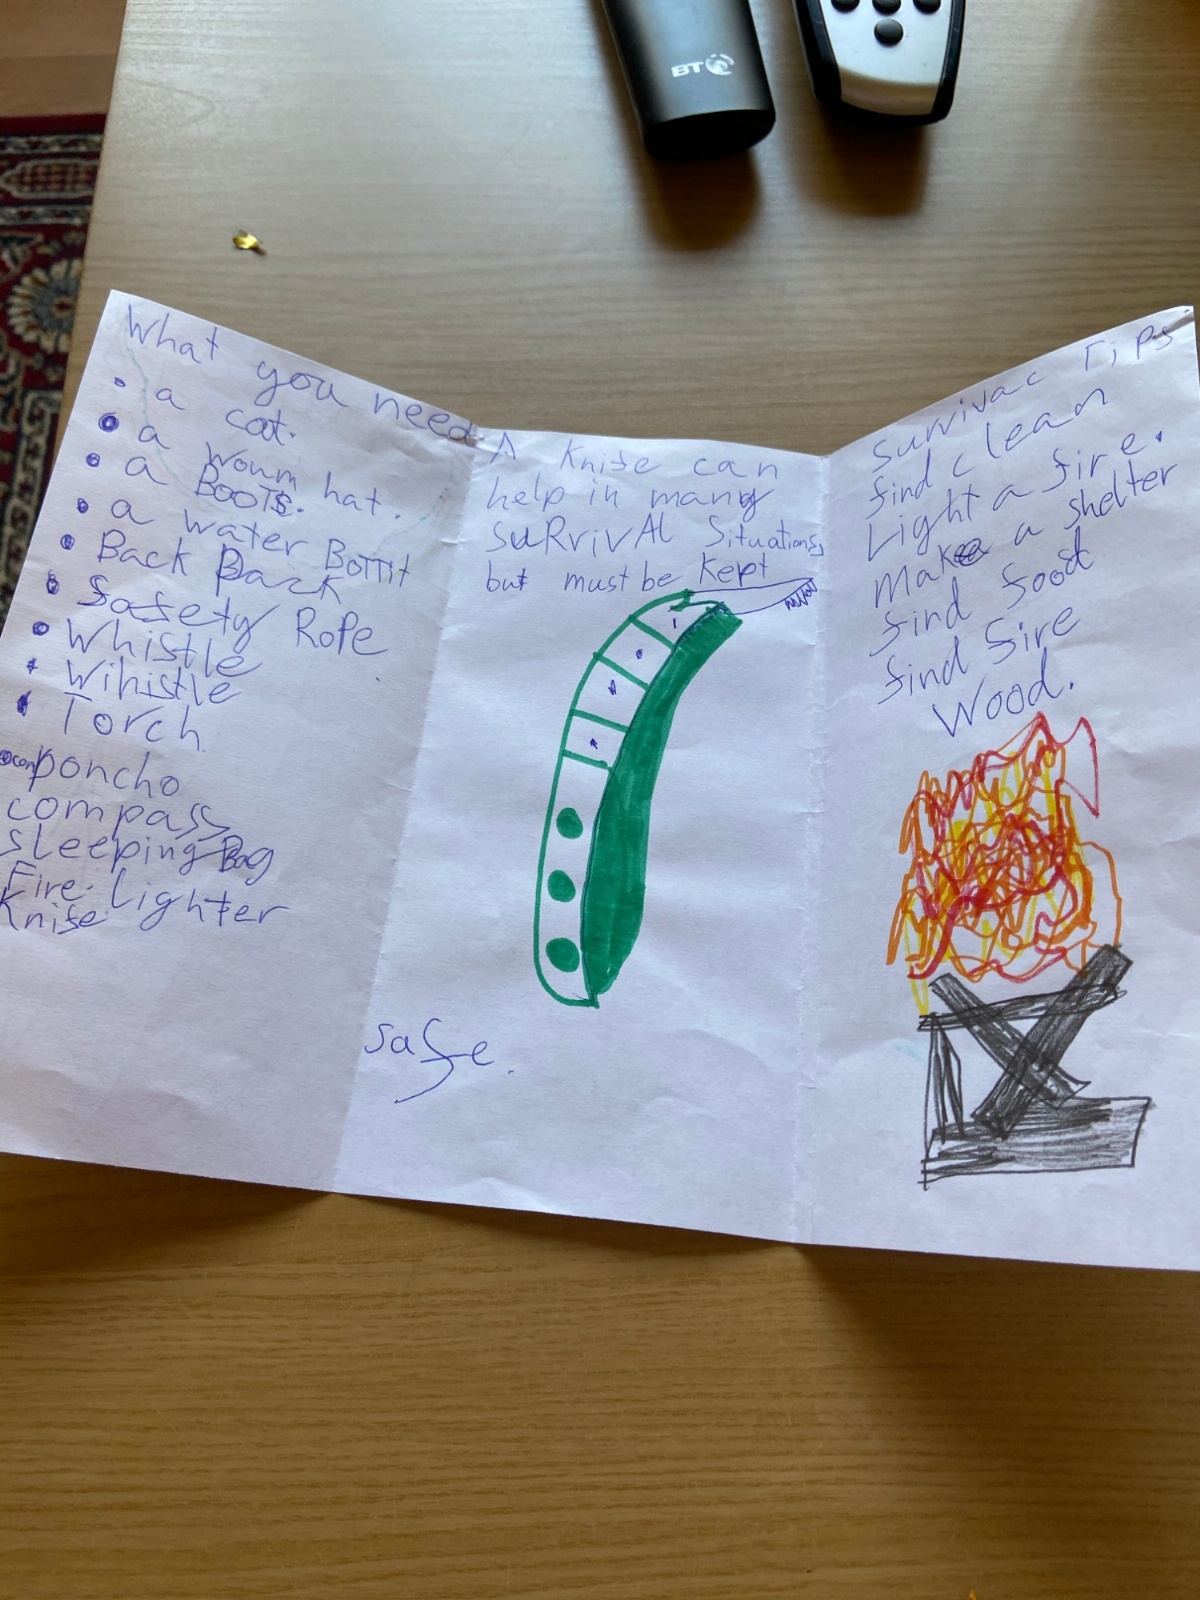 BT
What you need
• a cat.
• a woum hat.
• a BOOTS.
• a water Bottit
• Back Pack
• Safety Rope
• Whistle
• Wihistle
• Torch
poncho
compass
sleeping Bag
Fire lighter
Knife
A knife can
help in many
suRrivAl Situations,
but must be kept
safe.
Survival Tips
find clean
Light a fire.
make a shelter
find food
find fire
Wood.